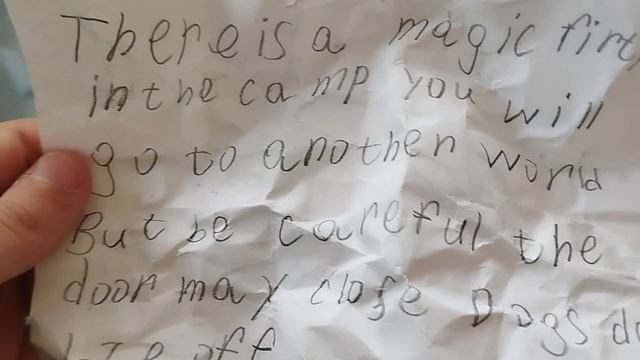 There is a magic firt
in the camp you will
go to another world
But be careful the
door may close Dogs do
off